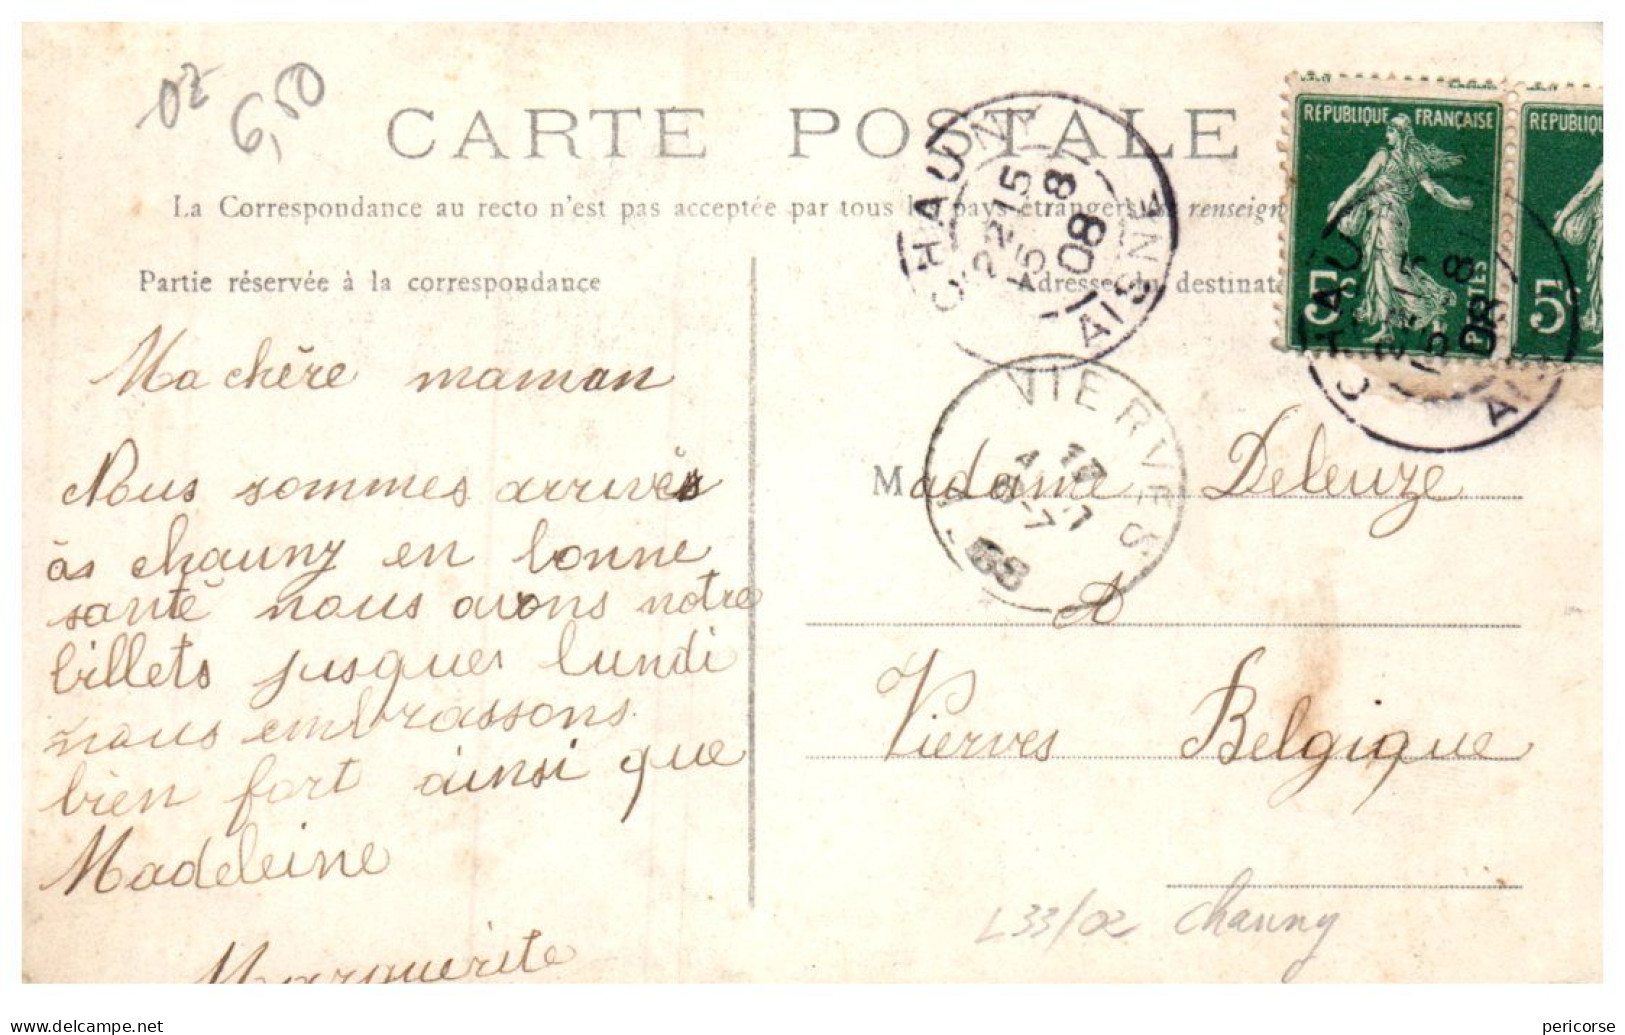 02
6,50
CARTE POSTALE
La Correspondance au recto n'est pas acceptée par tous pays étrangers renseign
Partie réservée à la correspondance
Adresse du destinat
RÉPUBLIQUE FRANÇAISE
5c
POSTES
RÉPUBLIQU
5c
CHAUNY
2 15
15 8
08
AISNE
CHAU
AIS
VIERVES
Ma chère maman
Nous sommes arrivés
às chauny en bonne
santé nous avons notre
billets jusques lundi
nous embrassons
bien fort ainsi que
Madeleine
Marguerite
Madame Deleuze
A
Vierves Belgique
L33/02 Chauny
www.delcampe.net
pericorse